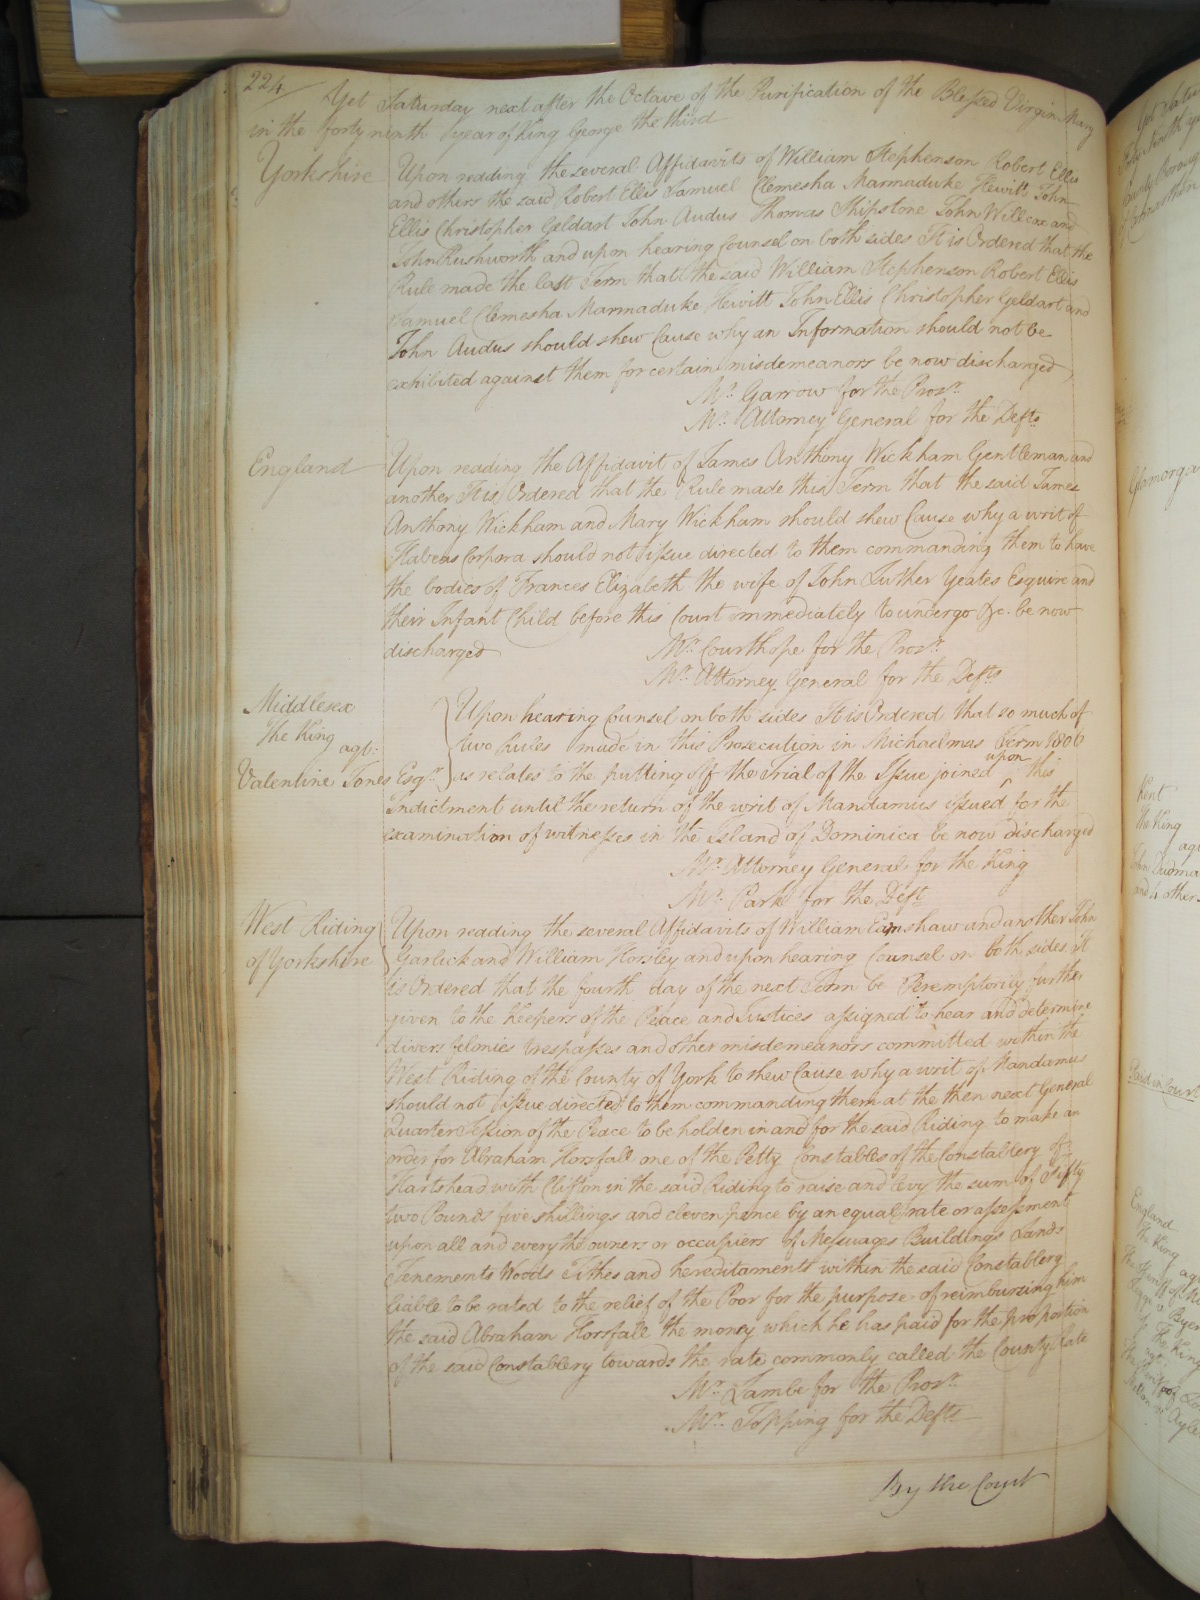 224
Yet Saturday next after the Octave of the Purification of the Blessed Virgin Mary
in the forty ninth year of King George the third
Yorkshire Upon reading the several Affidavits of William Stephenson Robert Ellis
and others the said Robert Ellis Samuel Clemesha Marmaduke Hewitt John
Ellis Christopher Geldart John Audus Thomas Shipstone John Willcox and
John Rushworth and upon hearing Counsel on both sides It is Ordered that the
Rule made the last Term that the said William Stephenson Robert Ellis
Samuel Clemesha Marmaduke Hewitt John Ellis Christopher Geldart and
John Audus should shew Cause why an Information should not be
exhibited against them for certain misdemeanors be now discharged
Mr. Garrow for the Prosr.
Mr. Attorney General for the Defts.
England Upon reading the Affidavit of James Anthony Wickham Gentleman and
another It is Ordered that the Rule made this Term that the said James
Anthony Wickham and Mary Wickham should shew Cause why a writ of
Habeas Corpora should not issue directed to them commanding them to have
the bodies of Frances Elizabeth the wife of John Luther Yeates Esquire and
their Infant Child before this Court immediately to undergo &c. be now
discharged Mr. Courthope for the Prosr.
Mr. Attorney General for the Defts
Middlesex Upon hearing Counsel on both sides It is Ordered that so much of
The King agt. two Rules made in this Prosecution in Michaelmas Term 1806
Valentine Jones Esqr. as relates to the putting off the Trial of the Issue joined upon this
Indictment until the return of the writ of Mandamus issued for the
examination of witnesses in the Island of Dominica be now discharged
Mr. Attorney General for the King
Mr. Park for the Deft
West Riding Upon reading the several Affidavits of William Earnshaw and another John
of Yorkshire Garlick and William Horsley and upon hearing Counsel on both sides it
is Ordered that the fourth day of the next Term be Peremptorily further
given to the Keepers of the Peace and Justices assigned to hear and determine
divers felonies trespasses and other misdemeanors committed within the
West Riding of the County of York to shew Cause why a writ of Mandamus
should not issue directed to them commanding them at the then next General
Quarter Session of the Peace to be holden in and for the said Riding to make an
order for Abraham Horsfall one of the Petty Constables of the Constablery of
Hartshead with Clifton in the said Riding to raise and levy the sum of Fifty
two Pounds five shillings and eleven pence by an equal rate or assessment
upon all and every the owners or occupiers of Messuages Buildings Lands
Tenements Woods Tithes and hereditaments within the said Constablery
liable to be rated to the relief of the Poor for the purpose of reimbursing him
the said Abraham Horsfall the money which he has paid for the proportion
of the said Constablery towards the rate commonly called the County Rate
Mr. Lambe for the Prosr.
Mr. Topping for the Defts
By the Court
Glamorgan
Kent
The King
Paid in Court
England
The King